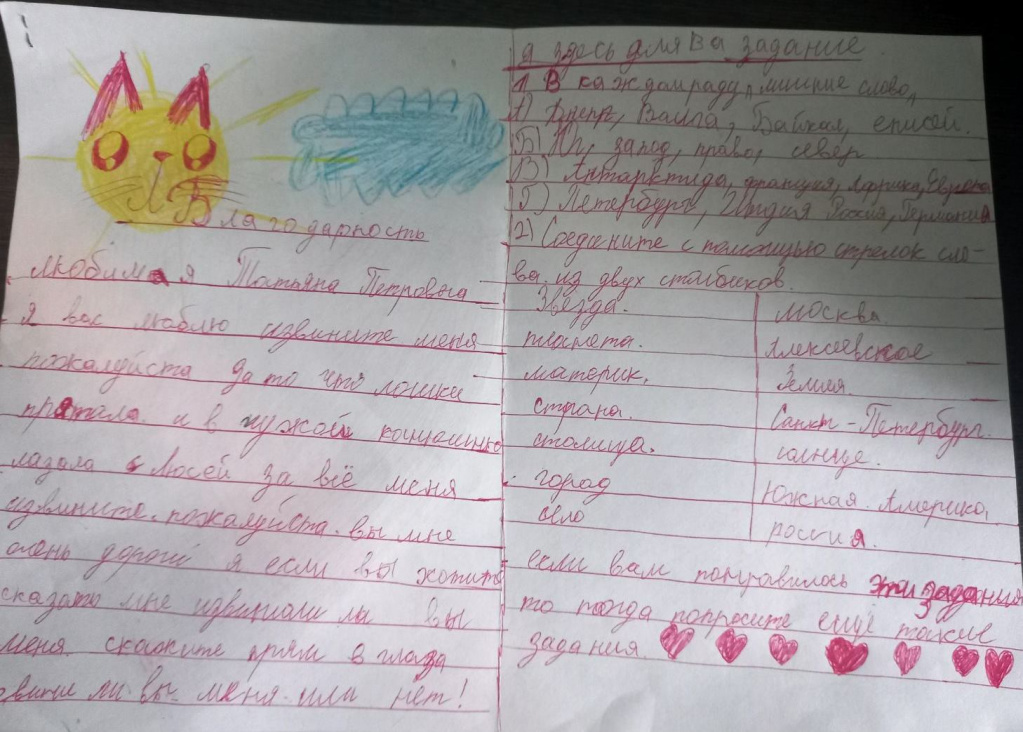 Благодарность
любимая Татьяна Петровна
я вас люблю извините меня
пожалуйста за то что ложки
прятала и в чужой
лазала с Люсей за всё меня
извините. пожалуйста. вы мне
очень дороги я если вы хотите
сказать мне извинили ли вы
меня. скажите прям в глаза
ли вы меня. или нет!
я здесь для Ва задание.
1. В каждом раду лишние слово
А) Днепр, Валга, Байкал, енисей.
Б) Юг, запод, право, север
В) Антарктида, франция, Африка, Европа
Г) Петербург, Индия Росия, Германия
2) Соедените с помощью стрелок сло-
ва из двух столбиков.
Звезда. москва.
планета. Алексеевское
материк. Земля.
страна. Санкт-Петербург.
столица. солнце.
город Южная Америка.
село россия.
если вам понравилось эти задания
то тогда попросите ещё такие
задания.